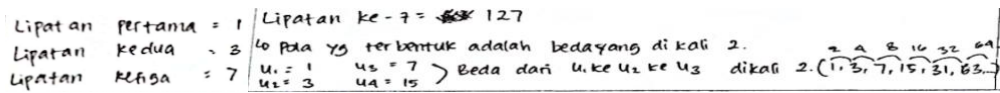 Lipatan pertama = 1
Lipatan kedua = 3
Lipatan ketiga = 7
Lipatan ke-7 = 127
Pola yg terbentuk adalah beda yang di kali 2.
U1 = 1 U3 = 7
U2 = 3 U4 = 15
) Beda dari U1 ke U2 ke U3 dikali 2. (1, 3, 7, 15, 31, 63...)
2 4 8 16 32 64